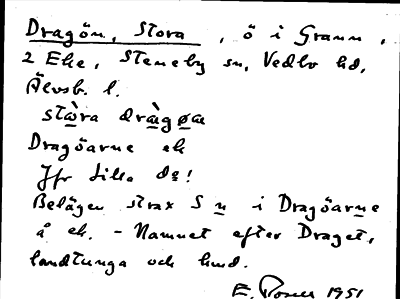 Dragön, Stora, ö i Grann,
2 Ehe, Steneby sn, Vedbo hd,
Älvsb. l.
stὼra dràgøa
Dragöarne ek
Jfr Lilla D:ē!
Belägen strax S n i Dragöarne
å ek. - Namnet efter Draget,
landtunga och hmd.
E. Rosell 1951